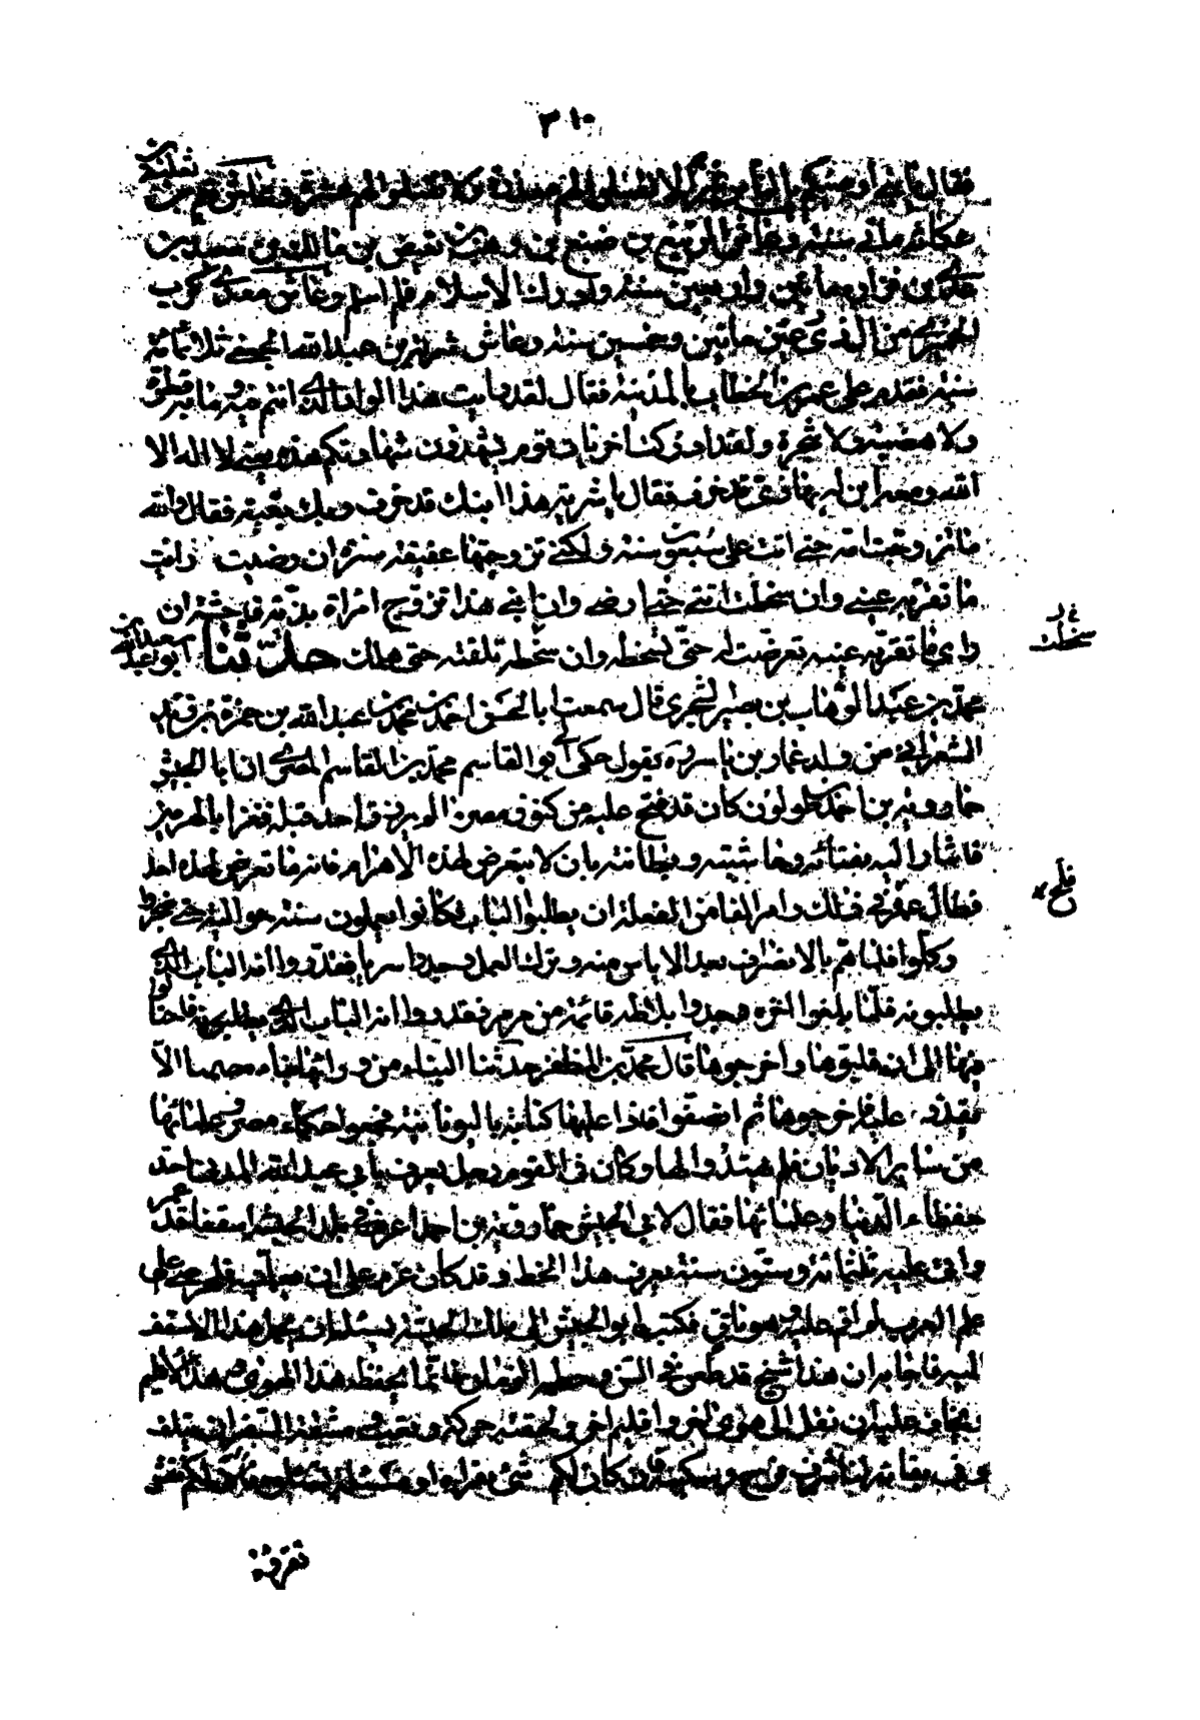 ٣١٠
فقال يا بني أوصيكم بالناس شرا لا تقبلوا لهم معذرة ولا تقيلوا لهم عثرة وعاش تيم بن ثعلبة بن
عكاشه مائتي سنة وعاش الربيع بن ضبيع بن وهب بن بغيض بن مالك بن سعد بن
عدي بن فزاره مائتين وأربعين سنة وأدرك الاسلام فلم يسلم وعاش معدي كرب
الحميري من آل ذي رعين مائتين وخمسين سنة وعاش شرية بن عبد الله الجعفي ثلاثمائة
سنة فقدم على عمر بن الخطاب بالمدينة فقال لقد رأيت هذا الوادي الذي انتم فيه وما به قطرة
ولا هضبة ولا شجرة ولقد ادركت اخريات قوم يشهدون شهادتكم هذه يعني لا اله الا
الله ومعه ابن له يهادى قد خرف فقال يا شرية هذا ابنك قد خرف وبك بقية فقال والله
ما تزوجت امه حتى اتت علي سبعون سنة ولكني تزوجتها عفيفة ستيرة ان رضيت رأيت
ما تقر به عيني وان سخطت اتتني حتى ارضى وان ابني هذا تزوج امراة بذية فاحشة ان
رأى ما تقر به عينه تعرضت له حتى يسخط وان سخط تلقته حتى هلك حدثنا ابو سعيد عبد الله بن
محمد بن عبد الوهاب بن نصر الشجري قال سمعت ابا الحسن احمد بن محمد بن عبد الله بن حمزة بن زيد
الشعراني من ولد عمار بن ياسر ره يقول حكى ابو القاسم محمد بن القاسم المصري ان ابا الجيش
حمارويه بن احمد بن طولون كان قد فتح عليه من كنوز مصر ما لم يرزق احد قبله فغزا بالهرمين
فاشار اليه ثقاته وحاشيته وبطانته بان لا يتعرض لهذه الاهرام فانه ما تعرض لهذه احد
فطال عمره فلج في ذلك وامر الفا من الفعلة ان يطلبوا الباب فكانوا يعملون سنة حواليه حتى ضجروا
وكلوا فلما هم بالانصراف بعد الاياس منه وترك العمل وجدوا سربا فقدروا انه الباب الذي
يطلبونه فلما بلغوا اخره وجدوا بلاطه قائمة من مرمر فقدروا انه الباب الذي يطلبونه فاحتالوا
فيها الى ان قلعوها واخرجوها قال محمد بن المظفر حدثنا البناء من ورائها بناء مصمما لا
يقدر عليه فاخرجوها ثم انضفوا فاذا عليها كتابة باليونانية فجمعوا حكماء مصر وعلمائها
من سائر الاديان فلم يهتدوا لها وكان في القوم رجل يعرف بابي عبد الله المديني احد
حفظاء الدنيا وعلمائها فقال لابي الجيش حمارويه بن احمد اعرف في بلد الحبشة اسقفا قد عمر
واتى عليه ثلثمائة وستون سنة يعرف هذا الخط وقد كان عزم على ان يعلمنيه فلحرصي على
علم العرب لم اقم عليه وهو باق فكتب ابو الجيش الى ملك الحبشة يسئله ان يحمل هذا الاسقف
اليه فاجابه ان هذا شيخ قد طعن في السن وحطمه الزمان وانما يحفظه هذا الهواء وهذا الاقليم
ويخاف عليه ان نقل الى هواء اخر واقليم اخر ولحقته حركة وتعب ومشقة السفر ان يتلف
وفي بقائه لنا شرف وفرح وسكينة فان كان لكم شئ يقراه او مسئلة تسئلونه فاكتب بذلك
تفرقة
نخ سخطت
فلج